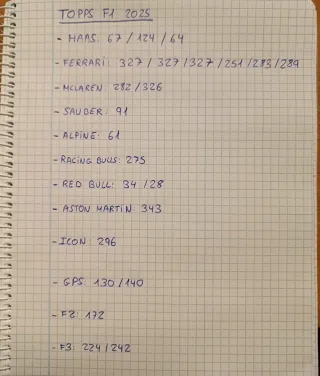 TOPPS F1 2025
- HAAS: 67 / 124 / 64
- FERRARI: 327 / 327 / 327 / 251 / 283 / 289
- MCLAREN: 282 / 326
- SAUBER: 91
- ALPINE: 61
- RACING BULLS: 275
- RED BULL: 34 / 28
- ASTON MARTIN: 343
- ICON: 296
- GPS: 130 / 140
- F2: 172
- F3: 224 / 242